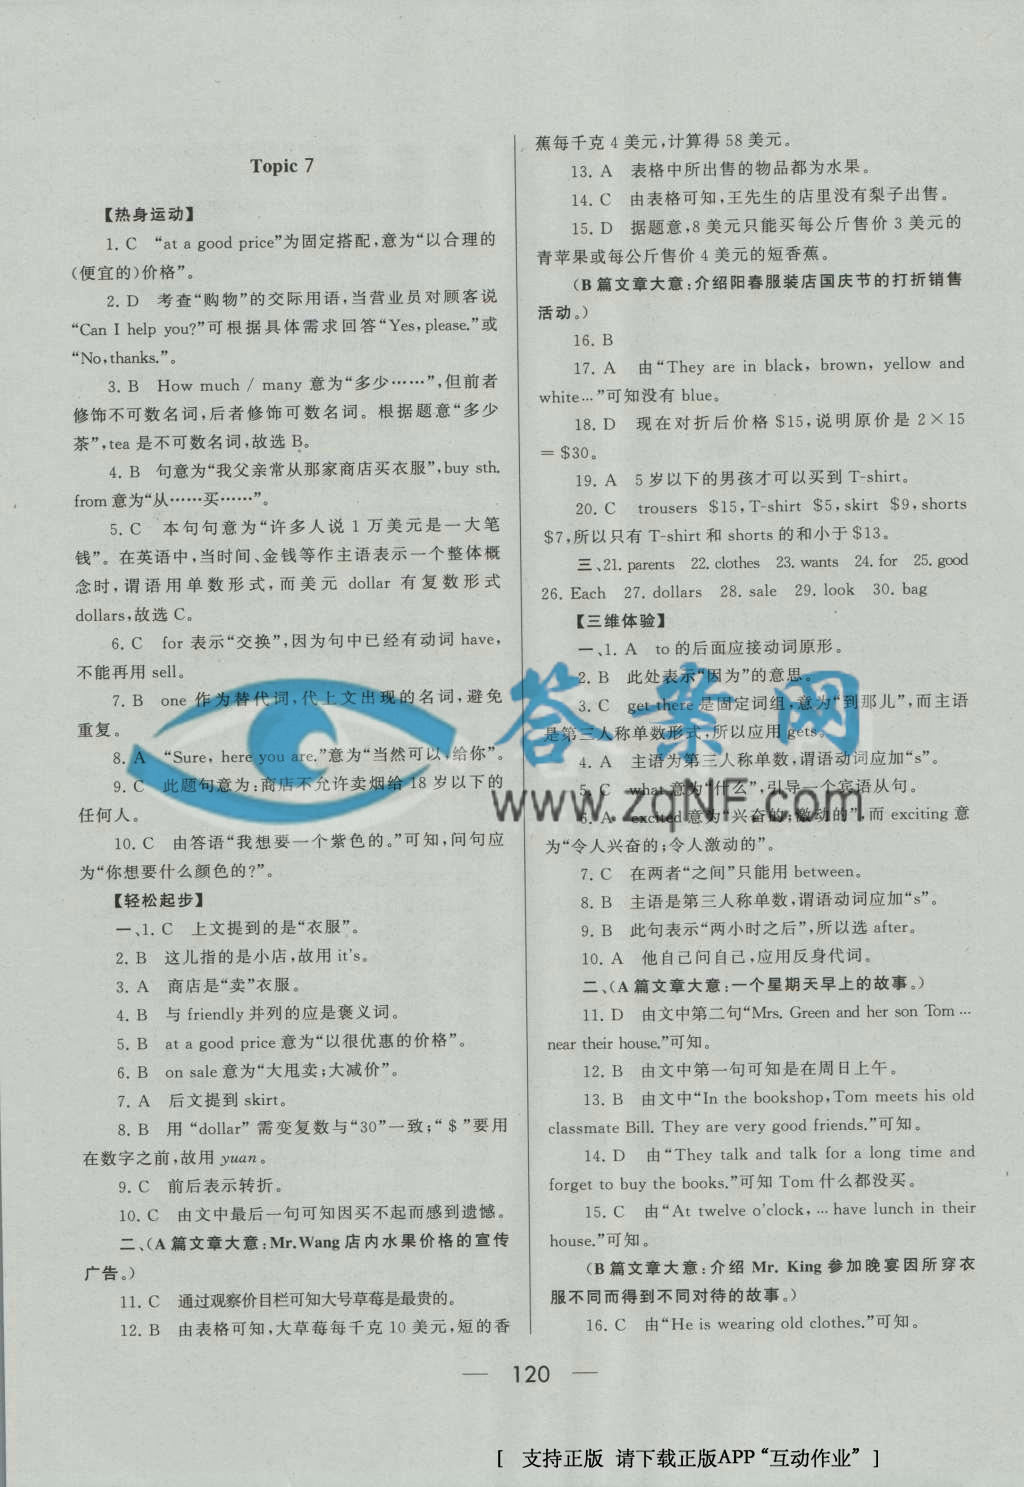 Topic 7
【热身运动】
1. C “at a good price”为固定搭配,意为“以合理的
(便宜的)价格”。
2. D 考查“购物”的交际用语,当营业员对顾客说
“Can I help you?”可根据具体需求回答“Yes, please.”或
“No, thanks.”。
3. B How much / many 意为“多少……”,但前者
修饰不可数名词,后者修饰可数名词。根据题意“多少
茶”,tea 是不可数名词,故选 B。
4. B 句意为“我父亲常从那家商店买衣服”,buy sth.
from 意为“从……买……”。
5. C 本句句意为“许多人说 1 万美元是一大笔
钱”。在英语中,当时间、金钱等作主语表示一个整体概
念时,谓语用单数形式,而美元 dollar 有复数形式
dollars,故选 C。
6. C for 表示“交换”,因为句中已经有动词 have,
不能再用 sell。
7. B one 作为替代词,代上文出现的名词,避免
重复。
8. A “Sure, here you are.”意为“当然可以,给你”。
9. C 此题句意为:商店不允许卖烟给 18 岁以下的
任何人。
10. C 由答语“我想要一个紫色的。”可知,问句应
为“你想要什么颜色的?”。
【轻松起步】
一、1. C 上文提到的是“衣服”。
2. B 这儿指的是小店,故用 it's。
3. A 商店是“卖”衣服。
4. B 与 friendly 并列的应是褒义词。
5. B at a good price 意为“以很优惠的价格”。
6. B on sale 意为“大甩卖;大减价”。
7. A 后文提到 skirt。
8. B 用 “dollar” 需变复数与“30”一致;“＄”要用
在数字之前,故用 yuan。
9. C 前后表示转折。
10. C 由文中最后一句可知因买不起而感到遗憾。
二、(A 篇文章大意:Mr. Wang 店内水果价格的宣传
广告。)
11. C 通过观察价目栏可知大号草莓是最贵的。
12. B 由表格可知,大草莓每千克 10 美元,短的香
蕉每千克 4 美元,计算得 58 美元。
13. A 表格中所出售的物品都为水果。
14. C 由表格可知,王先生的店里没有梨子出售。
15. D 据题意,8 美元只能买每公斤售价 3 美元的
青苹果或每公斤售价 4 美元的短香蕉。
(B 篇文章大意:介绍阳春服装店国庆节的打折销售
活动。)
16. B
17. A 由“They are in black, brown, yellow and
white…”可知没有 blue。
18. D 现在对折后价格 $15,说明原价是 2×15
＝$30。
19. A 5 岁以下的男孩才可以买到 T-shirt。
20. C trousers $15, T-shirt $5, skirt $9, shorts
$7,所以只有 T-shirt 和 shorts 的和小于 $13。
三、21. parents 22. clothes 23. wants 24. for 25. good
26. Each 27. dollars 28. sale 29. look 30. bag
【三维体验】
一、1. A to 的后面应接动词原形。
2. B 此处表示“因为”的意思。
3. C get there 是固定词组,意为“到那儿”,而主语
是第三人称单数形式,所以应用 gets。
4. A 主语为第三人称单数,谓语动词应加“s”。
5. C what 意为“什么”,引导一个宾语从句。
6. A excited 意为“兴奋的;激动的”,而 exciting 意
为“令人兴奋的;令人激动的”。
7. C 在两者“之间”只能用 between。
8. B 主语是第三人称单数,谓语动词应加“s”。
9. B 此句表示“两小时之后”,所以选 after。
10. A 他自己问自己,应用反身代词。
二、(A 篇文章大意:一个星期天早上的故事。)
11. D 由文中第二句“Mrs. Green and her son Tom …
near their house.”可知。
12. B 由文中第一句可知是在周日上午。
13. B 由文中“In the bookshop, Tom meets his old
classmate Bill. They are very good friends.”可知。
14. D 由“They talk and talk for a long time and
forget to buy the books.”可知 Tom 什么都没买。
15. C 由“At twelve o'clock, … have lunch in their
house.”可知。
(B 篇文章大意:介绍 Mr. King 参加晚宴因所穿衣
服不同而得到不同对待的故事。)
16. C 由“He is wearing old clothes.”可知。
答案网
www.zqNF.com
— 120 —
[ 支持正版 请下载正版APP“互动作业” ]